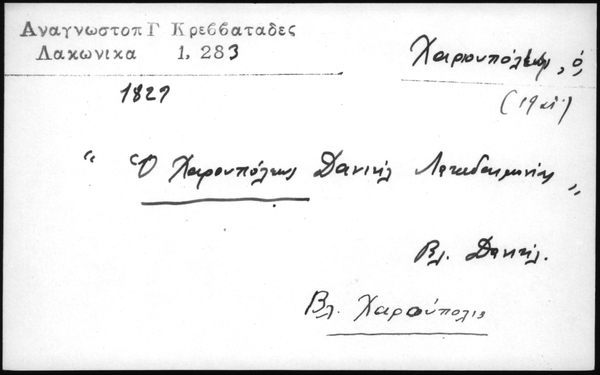 Αναγνωστοπ Γ Κρεββαταδες
Λακωνικα 1, 283
Χαριουπόλεως, ὁ,
(19 αἰ.)
1829
" Ὁ Χαρουπόλεως Δανιήλ Λακεδαιμονίας "
Βλ. Δανιήλ.
Βλ. Χαριούπολις